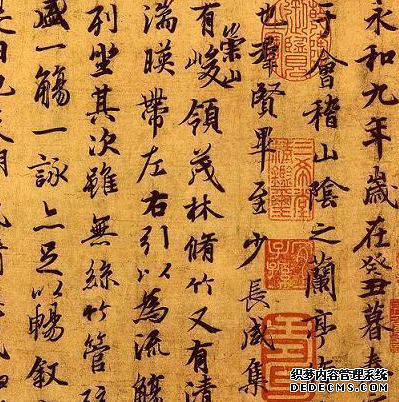 永和九年歲在癸丑暮春
于會稽山陰之蘭亭
也羣賢畢至少長咸集
崇山
有峻領茂林脩竹又有清
湍暎帶左右引以為流觴
列坐其次雖無絲竹管
盛一觴一詠亦足以暢敘
三希堂精鑑璽
宜子孫
织梦内容管理系统
DEDECMS.COM